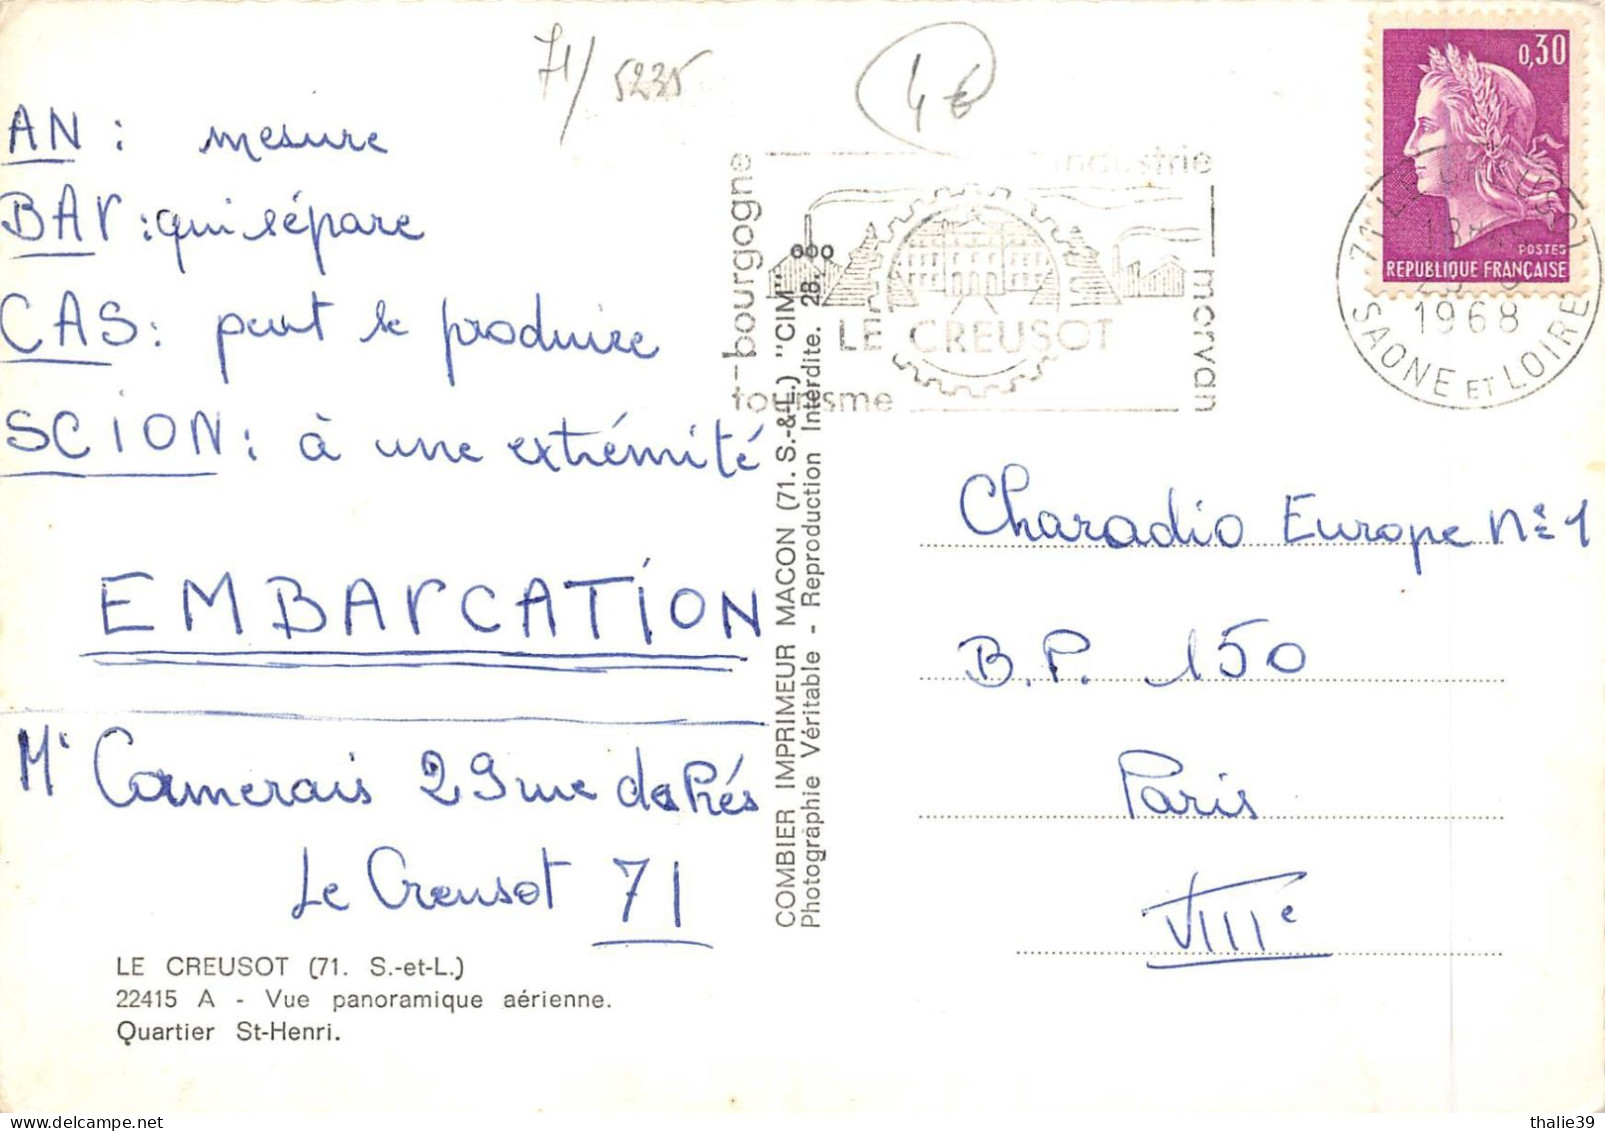 71/5235
4€
AN : mesure
BAr : qui sépare
CAS : peut se produire
SCION : à une extrémité
EMBArCATION
Mr Camerais 29 rue des Prés
Le Creusot 71
LE CREUSOT (71. S.-et-L.)
22415 A - Vue panoramique aérienne.
Quartier St-Henri.
COMBIER IMPRIMEUR MACON (71. S.-&-L.) "CIM"
Photographie Véritable - Reproduction Interdite. 28.
bourgogne
industrie
morvan
tourisme
LE CREUSOT
0,30
POSTES
REPUBLIQUE FRANÇAISE
71 LE CREUSOT
18
1968
SAONE ET LOIRE
Charadio Europe N° 1
B.P. 150
Paris
VIIIe
thalie39